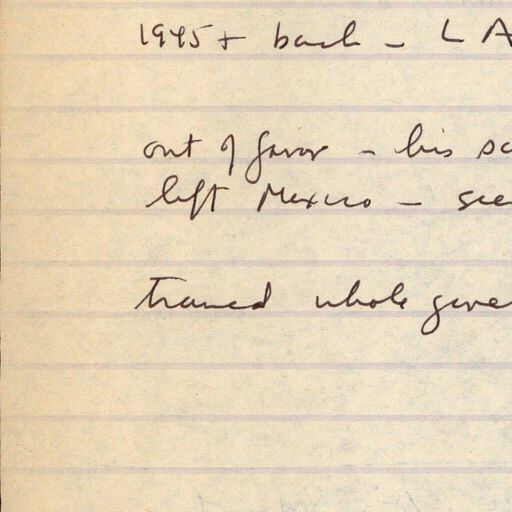 1945+ back – L A
out of favor – his sc
left Mexico – see
trained whole gene